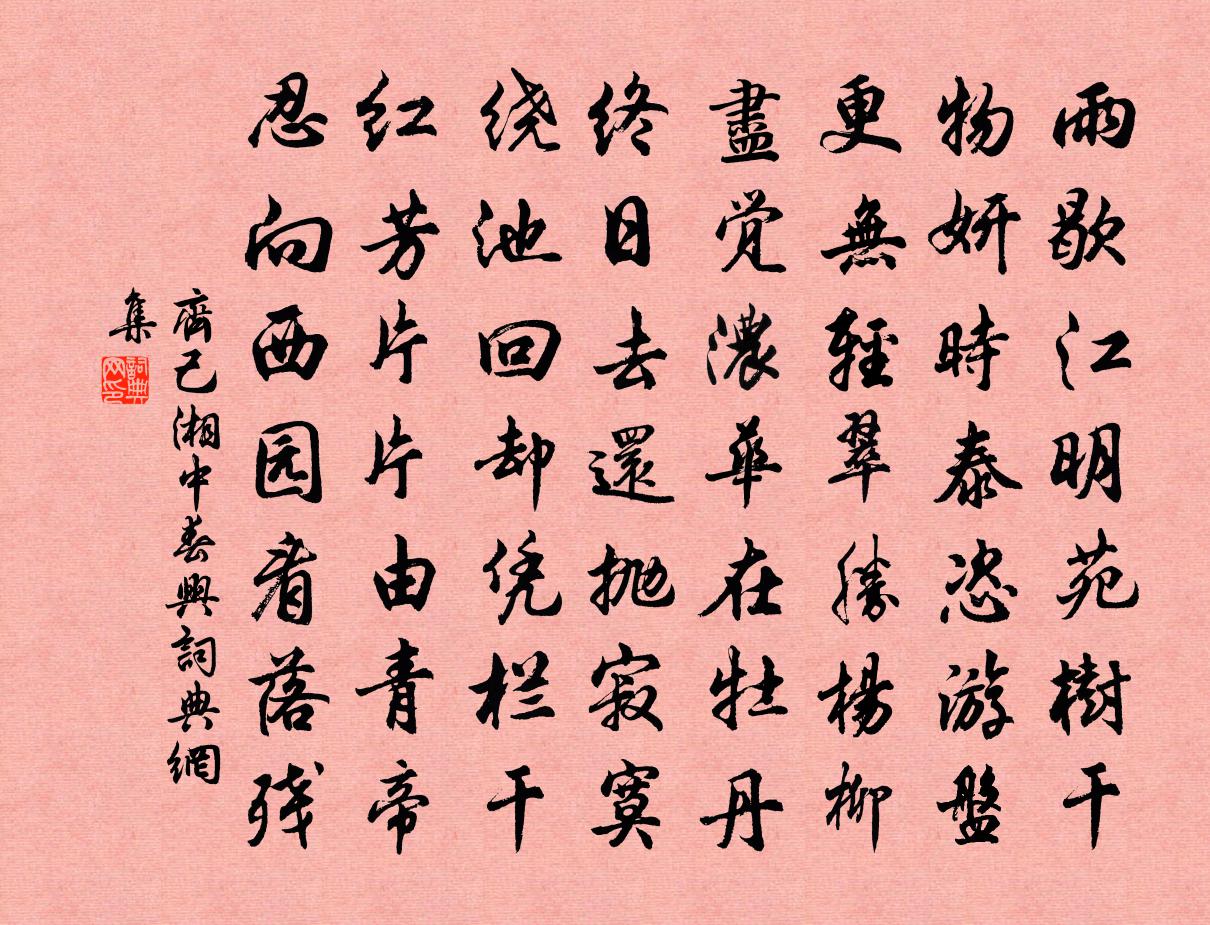 雨歇江明苑樹干
物妍時泰恣游盤
更無輕翠勝楊柳
盡覚濃華在牡丹
终日去還抛寂寞
绕池回却凭栏干
红芳片片由青帝
忍向西园看落残
齊己湘中春興詞典網
集
詞典网印